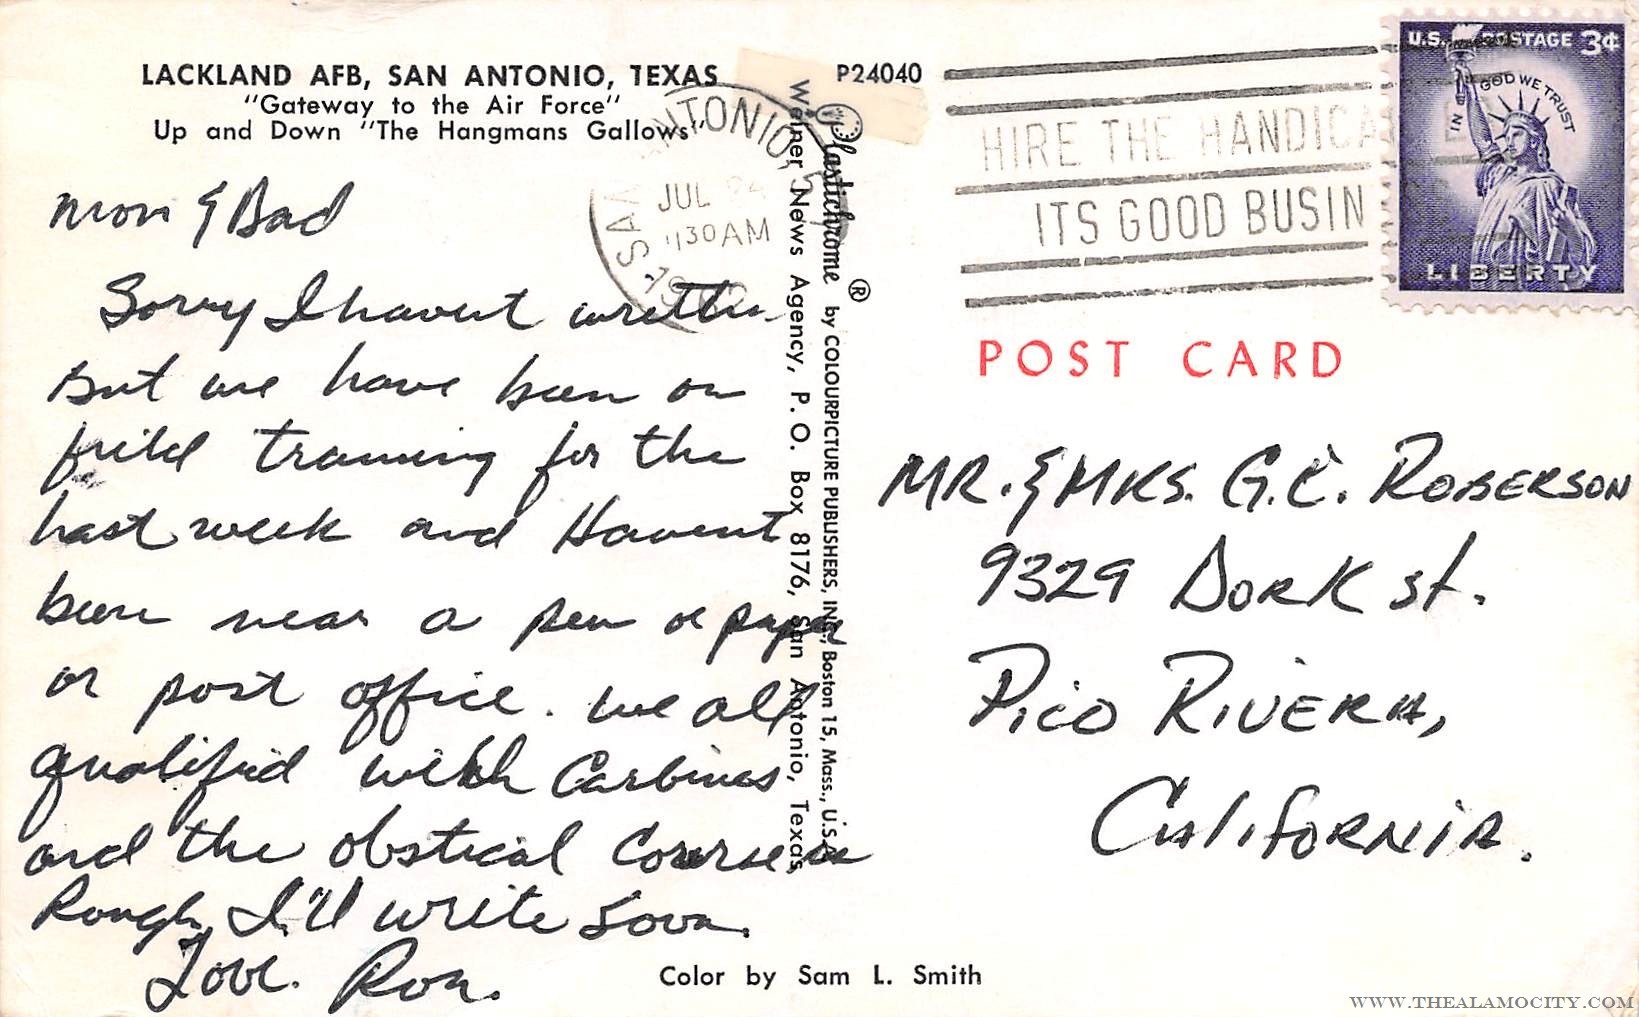 LACKLAND AFB, SAN ANTONIO, TEXAS
"Gateway to the Air Force"
Up and Down "The Hangmans Gallows"
Mom & Dad
Sorry I havent written
But we have been on
feild training for the
last week and Havent
been near a pen or paper
or post office. We all
qualified with Carbines
and the obstical Course is
Rough, I'll write soon.
Love. Ron.
P24040
Plastichrome ® by COLOURPICTURE PUBLISHERS, INC., Boston 15, Mass., U.S.A.
Weiner News Agency, P. O. Box 8176, San Antonio, Texas
SAN ANTONIO,
JUL 24
1130 AM
HIRE THE HANDICA
ITS GOOD BUSIN
U.S. POSTAGE 3¢
IN GOD WE TRUST
LIBERTY
POST CARD
MR. & MRS. G.C. ROBERSON
9329 DORK St.
PICO RIVERA,
CALIFORNIA.
Color by Sam L. Smith
WWW.THEALAMOCITY.COM